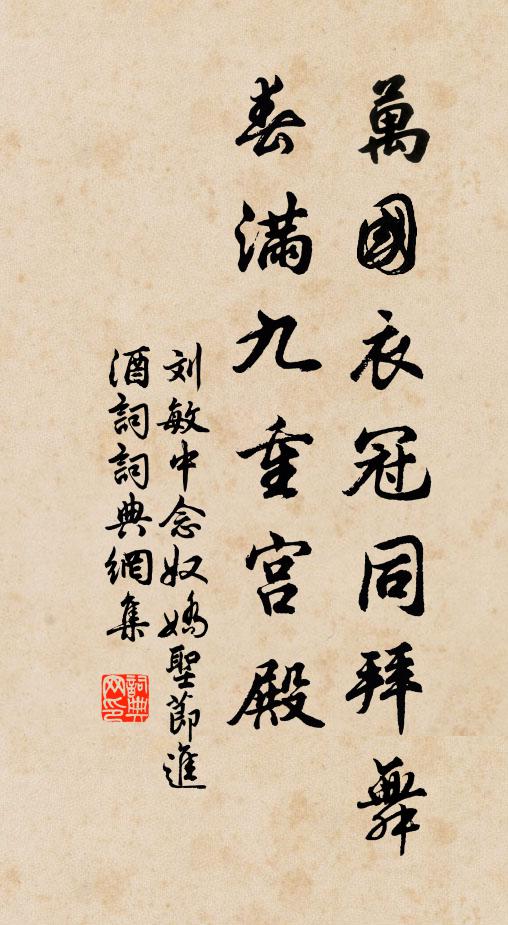 萬國衣冠同拜舞
春滿九重宮殿
刘敏中念奴嬌聖節進
酒詞詞典網集
詞典网印